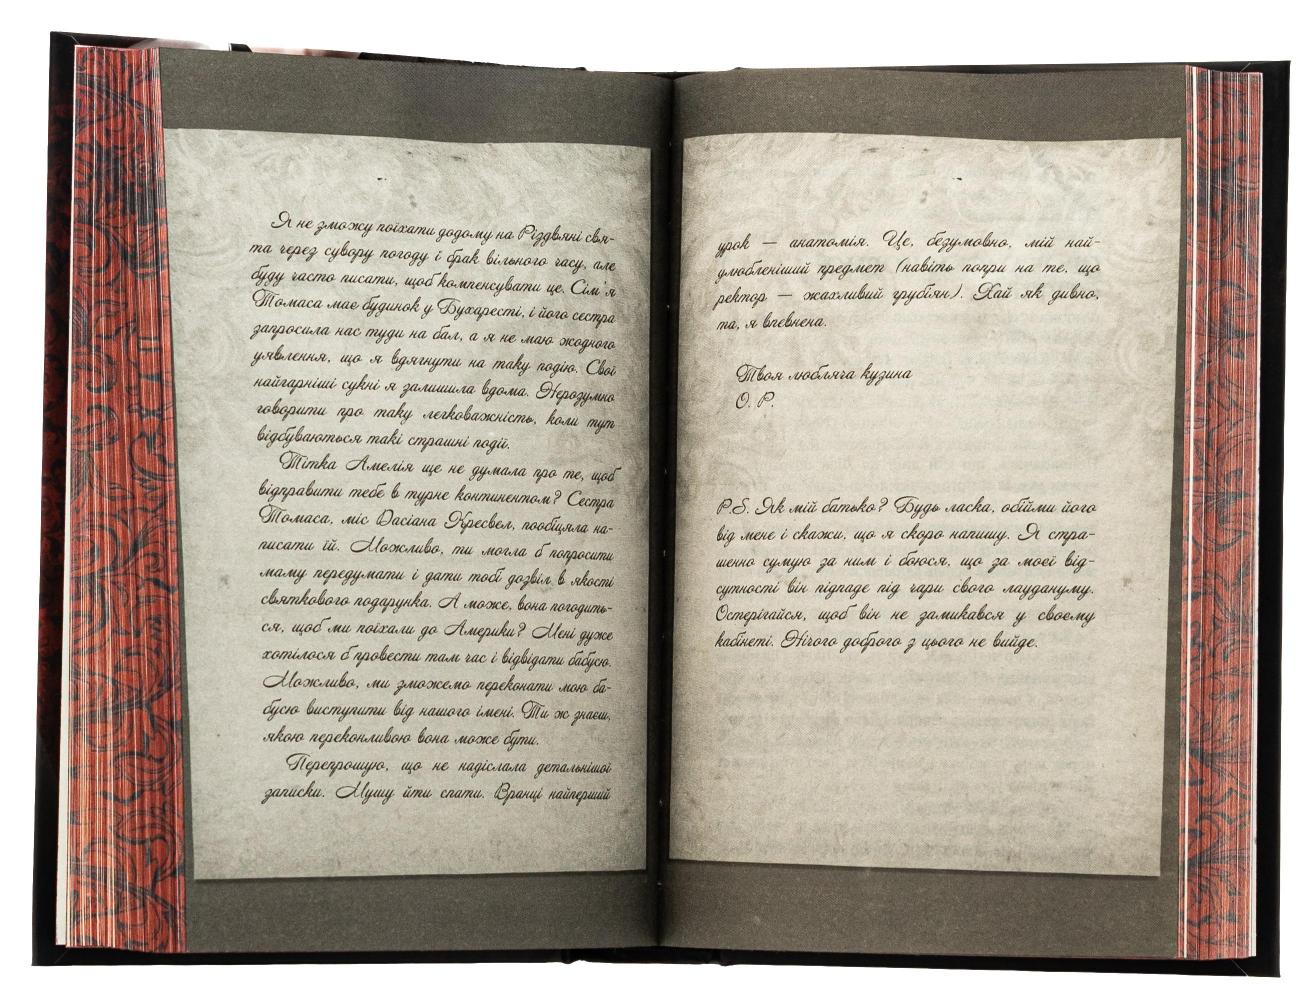 Я не зможу поїхати додому на Різдвяні свя-
та через сувору погоду і брак вільного часу, але
буду часто писати, щоб компенсувати це. Сім'я
Томаса має будинок у Бухаресті, і його сестра
запросила нас туди на бал, а я не маю жодного
уявлення, що я вдягнути на таку подію. Свої
найгарніші сукні я залишила вдома. Нерозумно
говорити про таку легковажність, коли тут
відбуваються такі страшні події.
Тітка Амелія ще не думала про те, щоб
відправити тебе в турне континентом? Сестра
Томаса, міс Дасіана Кресвел, пообіцяла на-
писати їй. Можливо, ти могла б попросити
маму передумати і дати тобі дозвіл в якості
святкового подарунка. А може, вона погодить-
ся, щоб ми поїхали до Америки? Мені дуже
хотілося б провести там час і відвідати бабусю.
Можливо, ми зможемо переконати мою ба-
бусю виступити від нашого імені. Ти ж знаєш,
якою переконливою вона може бути.
Перепрошую, що не надіслала детальнішої
записки. Мушу йти спати. Вранці найперший
урок — анатомія. Це, безумовно, мій най-
улюбленіший предмет (навіть попри на те, що
ректор — жахливий грубіян). Хай як дивно,
та, я впевнена.
Твоя любляча кузина
О. Р.
P.S. Як мій батько? Будь ласка, обійми його
від мене і скажи, що я скоро напишу. Я стра-
шенно сумую за ним і боюся, що за моєї від-
сутності він підпаде під чари свого лаудануму.
Остерігайся, щоб він не замикався у своєму
кабінеті. Нічого доброго з цього не вийде.